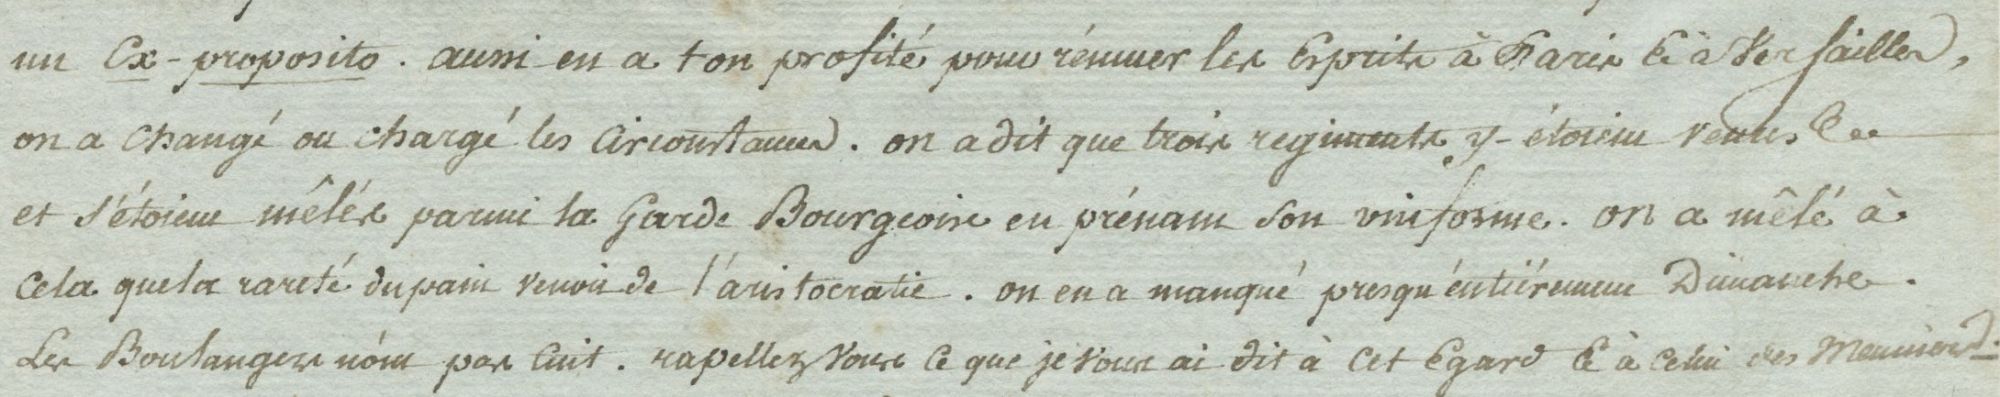 un Ex-proposito. aussi en a t on profité pour rémuer les Esprits à Paris & à Versailles,
on a changé ou chargé les Circonstances. on a dit que trois regiments y-étoient venus &c
et s'étoient mêlés parmi la Garde Bourgeoise en prénant son uniforme. on a mêlé à
cela que la rareté du pain venoit de l'aristocratie. on en a manqué presqu'éntiérement Dimanche.
Les Boulangers nónt pas Cuit. rapellez Vous ce que je vous ai dit à cet Egard & à celui des Meuniers.